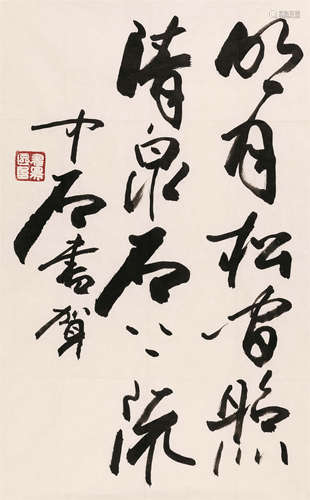 明月松间照
清泉石上流
中石书贺